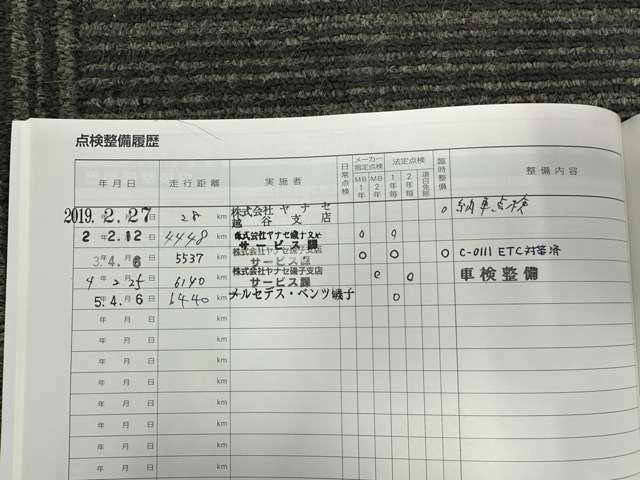 点検整備履歴
年月日 走行距離 実施者 日常点検 メーカー指定点検 MB1年 MB2年 法定点検 1年毎 2年毎 項目免除 臨時整備 整備内容
2019. 2. 27 28 km 株式会社 ヤナセ 越谷支店 0 納車点検
2 2. 12 4448 km 株式会社ヤナセ磯子支店 サービス課 0 0
3 年 4. 6 5537 km 株式会社ヤナセ磯子支店 サービス課 0 0 0 C-0111 ETC対策済
4 年 2 25 6140 km 株式会社ヤナセ磯子支店 サービス課 0 0 車検整備
5. 4. 6 6440 km メルセデス・ベンツ磯子 0
年 月 日 km
年 月 日 km
年 月 日 km
年 月 日 km
年 月 日 km
年 月 日 km
年 月 日 km
年 月 日 km